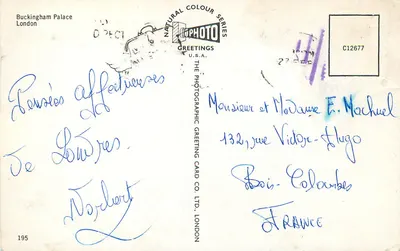 Buckingham Palace
London
NATURAL COLOUR SERIES
PHOTO
GREETINGS
U.S.A.
C12677
THE PHOTOGRAPHIC GREETING CARD CO. LTD. LONDON
Pensées affectueuses
De Londres.
Norbert
Monsieur et Madame E. Machuel
132, rue Victor-Hugo
Bois-Colombes
FRANCE
195